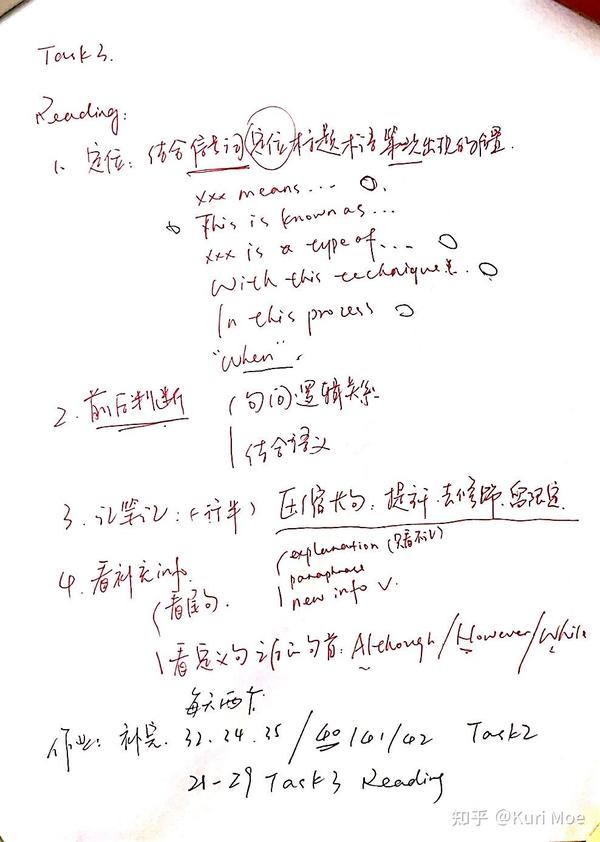 Task3.
Reading:
1. 定位: 结合信号词 定位标题术语第一次出现的位置.
xxx means...
This is known as...
xxx is a type of...
With this technique.
In this process
"When".
2. 前后判断 句间逻辑关系
结合语义
3. 记笔记: (一行半) 压缩长句. 提主干. 去修饰. 留限定.
4. 看补充info. explanation (只看不记)
paraphrase
看尾句. new info √
看定义句之后的句首: Although/However/While
每天两卡
作业: 补完. 32. 34. 35 / 40/41/42 Task2
21-29 Task3 Reading
知乎 @Kuri Moe